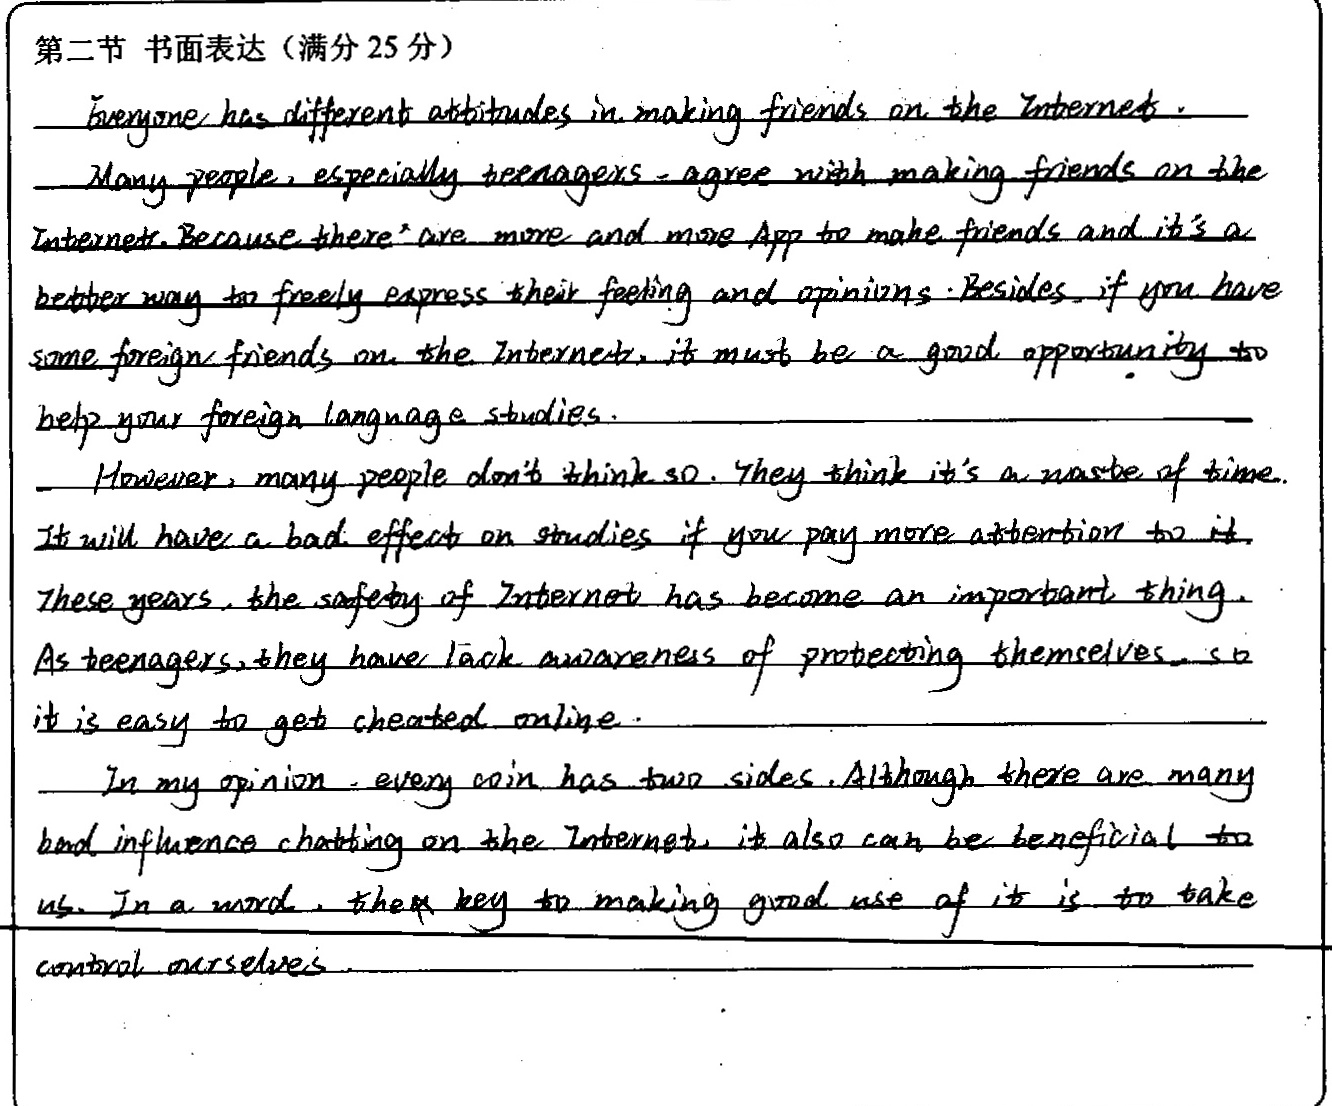 第二节 书面表达（满分 25 分）
Everyone has different attitudes in making friends on the Internet.
Many people, especially teenagers, agree with making friends on the
Internet. Because there are more and more App to make friends and it's a
better way to freely express their feeling and opinions. Besides, if you have
some foreign friends on the Internet, it must be a good opportunity to
help your foreign language studies.
However, many people don't think so. They think it's a waste of time.
It will have a bad effect on studies if you pay more attention to it.
These years, the safety of Internet has become an important thing.
As teenagers, they have lack awareness of protecting themselves, so
it is easy to get cheated online.
In my opinion, every coin has two sides. Although there are many
bad influence chatting on the Internet, it also can be beneficial to
us. In a word, the key to making good use of it is to take
control ourselves.